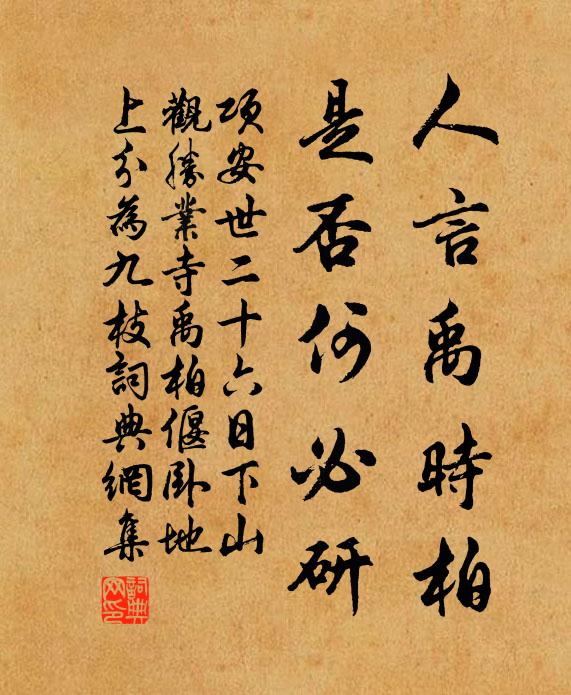 人言禹時柏
是否何必研
項安世二十六日下山
觀勝業寺禹柏偃臥地
上分為九枝詞典網集
詞典網印